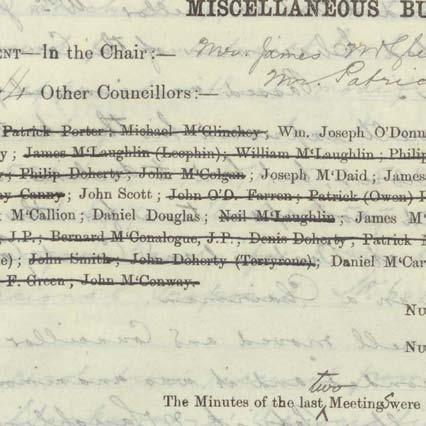 MISCELLANEOUS BU
ENT—In the Chair:— Mr. James
Wm. Patric
4 Other Councillors:—
Patrick Porter; Michael M'Glinchey; Wm. Joseph O'Donn
y; James M'Laughlin (Leophin); William M'Laughlin; Philip
; Philip Doherty; John M'Colgan; Joseph M'Daid; James
y Canny; John Scott; John O'D. Farren; Patrick (Owen)
M'Callion; Daniel Douglas; Neil M'Laughlin; James M'
, J.P.; Bernard M'Conalogue, J.P.; Denis Doherty; Patrick
e); John Smith; John Doherty (Terryrone); Daniel M'Car
F. Green; John M'Conway.
NU
NU
The Minutes of the last two Meetings were